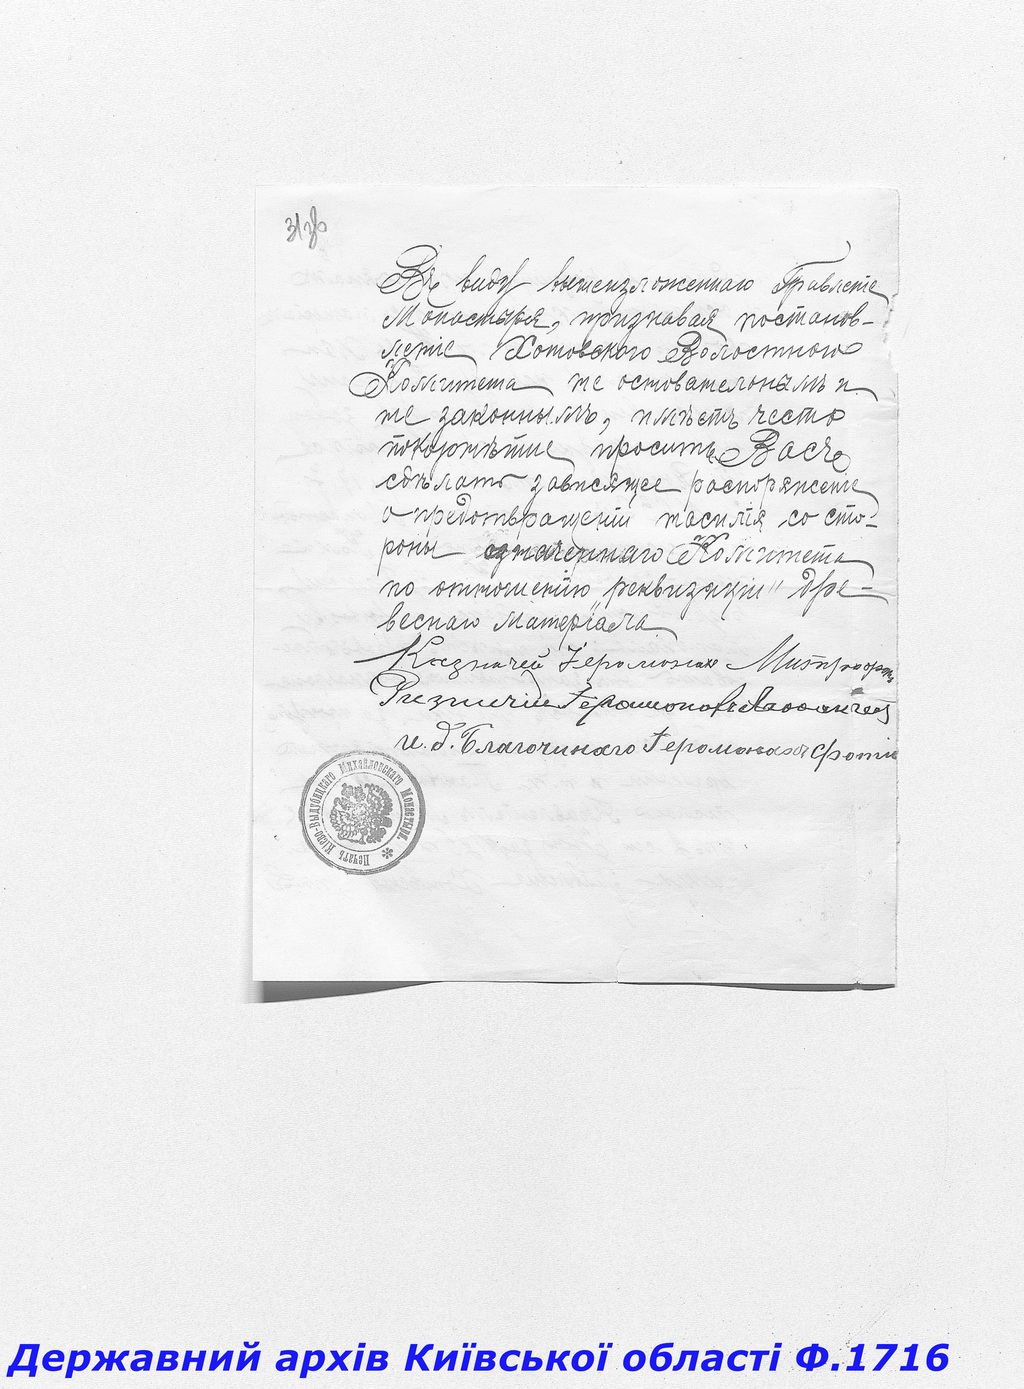 31зв
Въ виду вышеизложеннаго Правленіе
Монастыря, признавая постанов-
леніе Хотовскаго Волостнаго
Комитета не основательнымъ и
не законнымъ, имѣетъ честь
покорнѣйше просить Васъ
сдѣлать зависящее распоряженіе
о предотвращеніи насилія со сто-
роны означеннаго Комитета
по отношенію реквизиціи древ-
веснаго матеріала
Казначей Іеромонахъ Митрофанъ
Ризничій Іеромонахъ
и. д. Благочиннаго Іеромонахъ Фотій
Печать Кіево-Выдубицкаго Михайловскаго Монастыря.
Державний архів Київської області Ф.1716